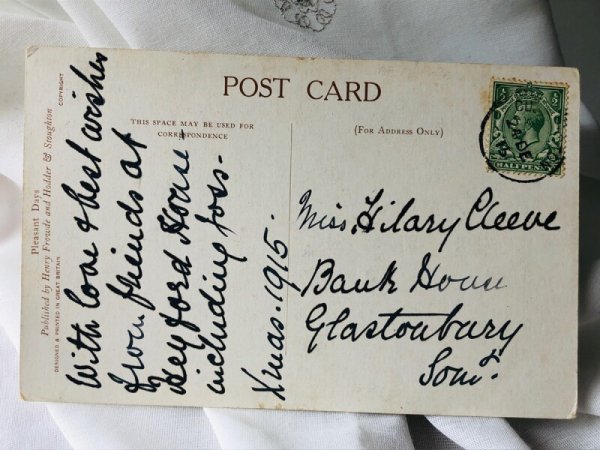 POST CARD
THIS SPACE MAY BE USED FOR
CORRESPONDENCE
(For Address Only)
Pleasant Days
Published by Henry Frowde and Hodder & Stoughton
COPYRIGHT
DESIGNED & PRINTED IN GREAT BRITAIN
With love & best wishes
from friends at
Heyford House -
including Joss.
Xmas. 1915.
Miss. Hilary Cleeve
Bank House
Glastonbury
Somt.
HALFPENNY